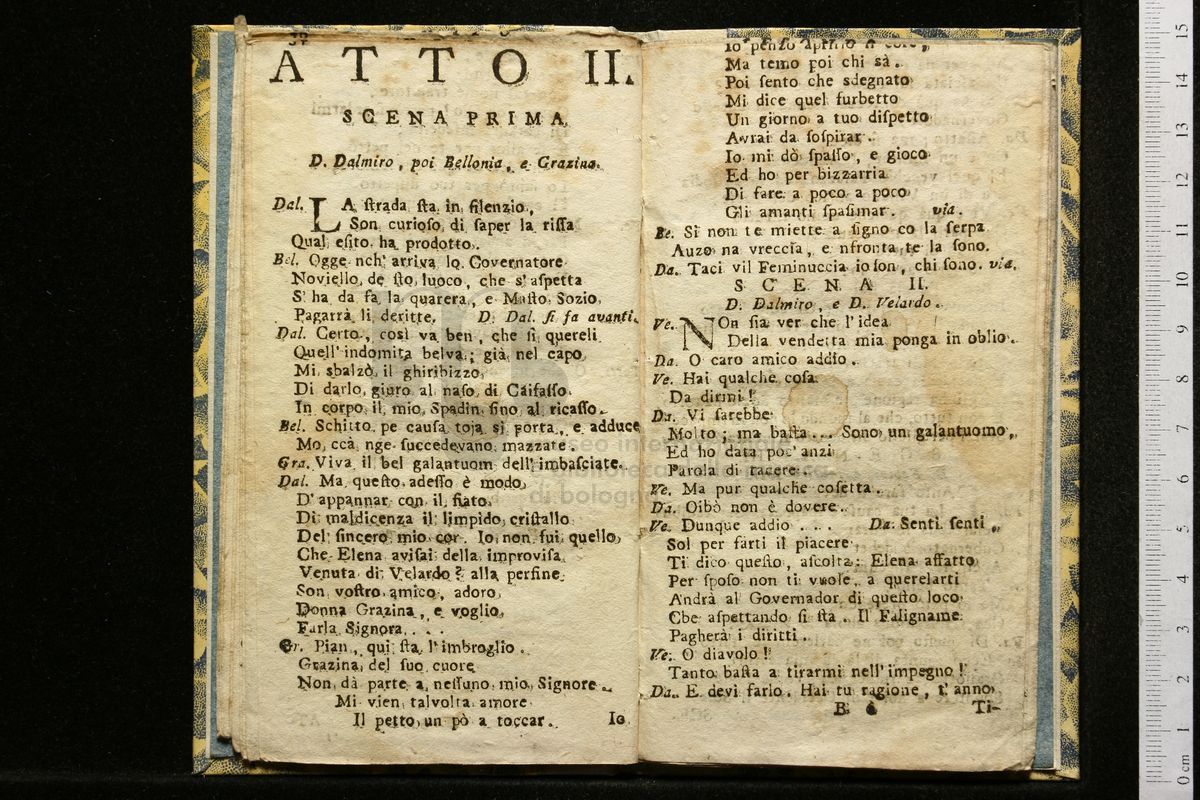 ATTO II.
SCENA PRIMA.
D. Dalmiro, poi Bellonia, e Grazina.
Dal. LA ſtrada ſta in ſilenzio,
Son curioſo di ſaper la riſſa
Qual eſito ha prodotto.
Bel. Ogge nch' arriva lo Covernatore
Noviello de ſto luoco, che s'aſpetta
S' ha da fa la quarera, e Maſto Sozio
Pagarrà li deritte. D. Dal. ſi fa avanti.
Dal. Certo, così va ben, che ſi quereli
Quell' indomita belva; già nel capo
Mi sbalzò il ghiribizzo
Di darlo, giuro al naſo di Caifaſſo
In corpo il mio Spadin fino al ricaſſo.
Bel. Schitto pe cauſa toja si porta, e adduce
Mo, ccà nge ſuccedevano mazzate.
Gra. Viva il bel galantuom dell' imbaſciate.
Dal. Ma queſto adeſſo è modo
D'appannar con il fiato
Di maldicenza il limpido criſtallo
Del ſincero mio cor. Io non fui quello,
Che Elena aviſai della improviſa
Venuta di Velardo? alla perfine
Son voſtro amico, adoro
Donna Grazina, e voglio
Farla Signora....
Gr. Pian, qui ſta l'imbroglio.
Grazina del ſuo cuore
Non dà parte a neſſuno mio Signore.
Mi vien talvolta amore
Il petto un pò a toccar. Io
Io penſo aprirlo il core,
Ma temo poi chi sà.
Poi ſento che sdegnato
Mi dice quel furbetto
Un giorno a tuo diſpetto
Avrai da ſoſpirar.
Io mi dò ſpaſſo, e gioco
Ed ho per bizzarria
Di fare a poco a poco
Gli amanti ſpaſimar. via.
Be. Si non te miette a ſigno co la ſerpa
Auzo na vreccia, e nfronta te la ſono.
Da. Taci vil Feminuccia io ſon, chi ſono. via.
SCENA II.
D. Dalmiro, e D. Velardo.
Ve. NOn ſia ver che l'idea
Della vendetta mia ponga in oblio.
Da. O caro amico addio.
Ve. Hai qualche coſa
Da dirmi!
Da. Vi ſarebbe
Molto; ma baſta... Sono un galantuomo,
Ed ho data poc' anzi
Parola di tacere.
Ve. Ma pur qualche coſetta.
Da. Oibò non è dovere.
Ve. Dunque addio.... Da. Senti ſenti,
Sol per farti il piacere
Ti dico queſto, aſcolta: Elena affatto
Per ſpoſo non ti vuole, a querelarti
Andrà al Governador di queſto loco
Che aſpettando ſi ſta. Il Faligname
Pagherà i diritti.
Ve. O diavolo!
Tanto baſta a tirarmi nell' impegno!
Da. E devi farlo. Hai tu ragione, t'anno
B Ti-
museo internazionale
biblioteca della musica
di bologna
15
14
13
12
11
10
9
8
7
6
5
4
3
2
1
0 cm